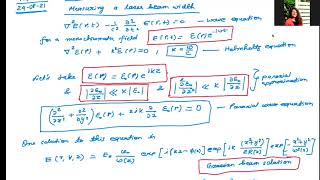 24-08-21 Measuring a laser beam width
∇²E(r,t) - 1/c² ∂²/∂t² E(r,t) = 0 — wave equation
for a monochromatic field E(r,t) = E(r) e^{-iωt}
∇²E(r) + k²E(r) = 0 | k = ω/c | — Helmholtz equation
Let's take E(r) = E₀(r) e^{ikz}
& |∂E₀/∂z| << k|E₀| & |∂²E₀/∂z²| << k|∂E₀/∂z| } paraxial approximation
(∂²/∂x² + ∂²/∂y²) E₀(r) + 2ik ∂/∂z E₀(r) = 0 — Paraxial wave equation
One solution to this equation is
E(x,y,z) = E₀ ω₀/ω(z) exp[i(kz - φ(z))] exp[ik (x²+y²)/2R(z)] exp[-(x²+y²)/ω²(z)]
Gaussian beam solution